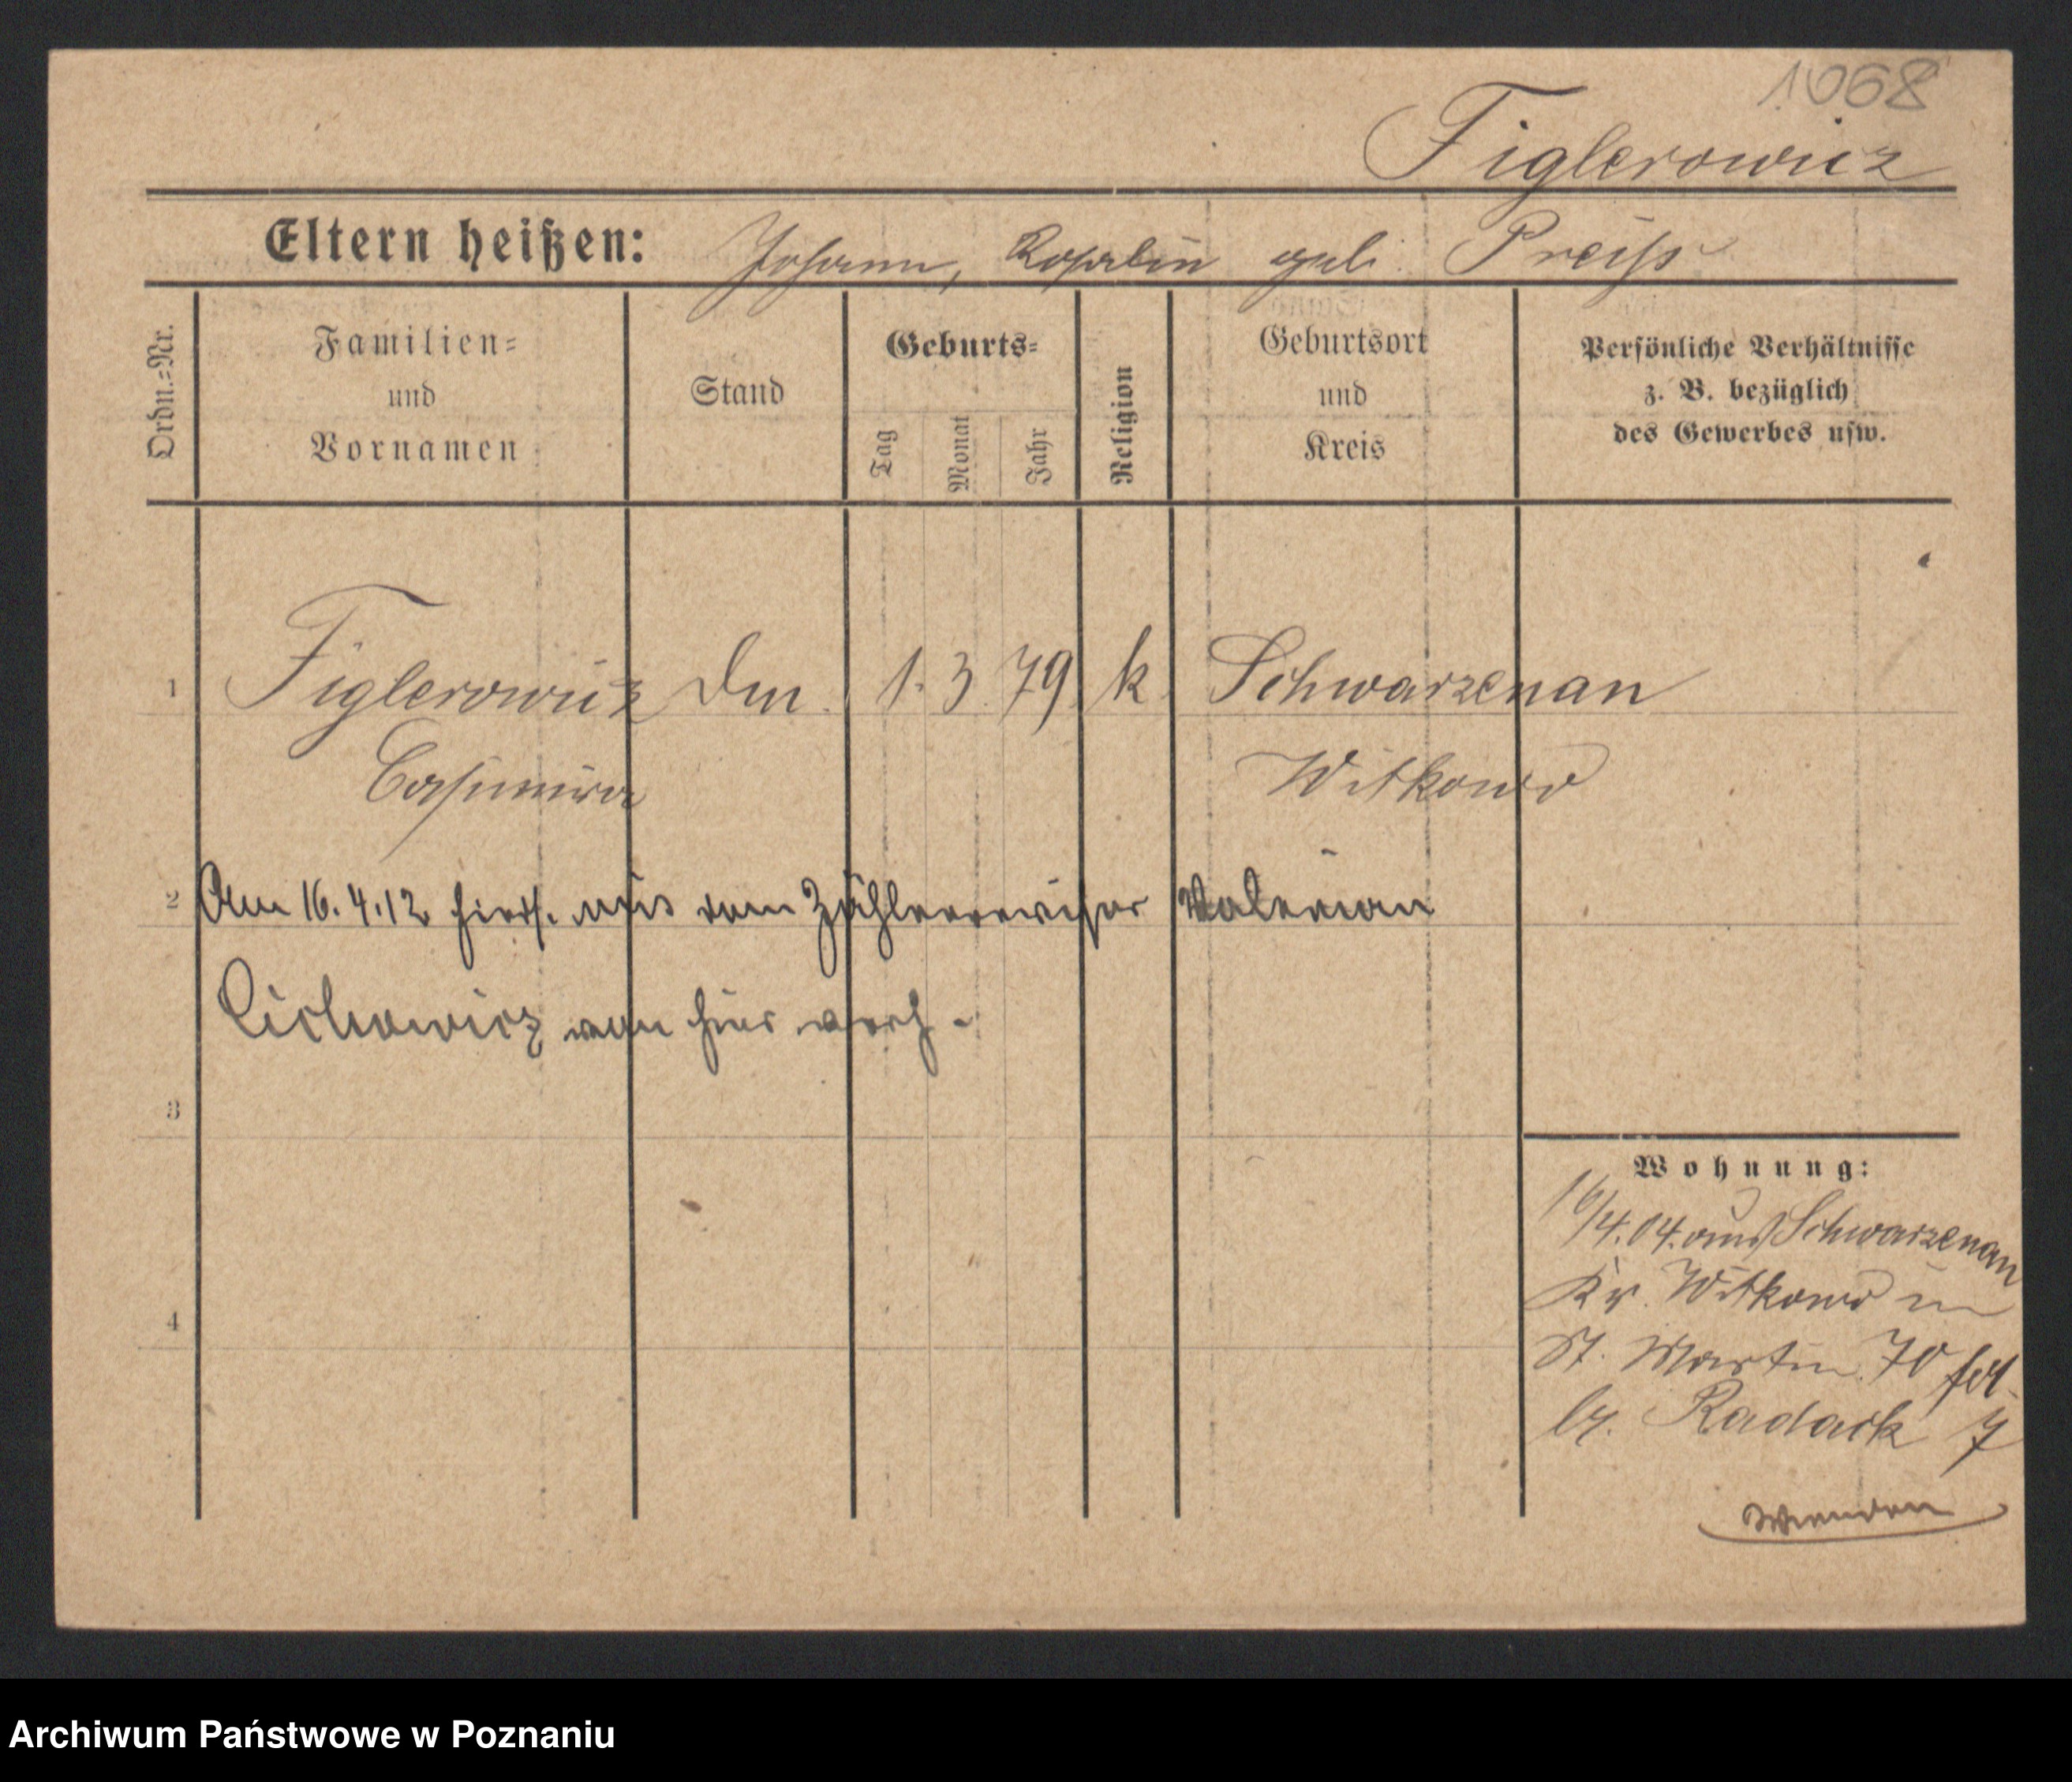 1068
Figlerowicz
Eltern heißen: Johann, Rosalie geb. Preiss
Ordn.=Nr.
Familien=
und
Vornamen
Stand
Geburts=
Tag
Monat
Jahr
Religion
Geburtsort
und
Kreis
Persönliche Verhältnisse
z. B. bezüglich
des Gewerbes usw.
1 Figlerowicz 1. 3. 79 k Schwarzenau
Casimira Witkowo
2 Am 16.4.12 hiers. mit dem Valerian
Cichowicz von hier verh.
3
4
Wohnung:
16/4.04. aus Schwarzenau
Kr. Witkowo in
St. Martin 70
b. Radack
Wenden
Archiwum Państwowe w Poznaniu